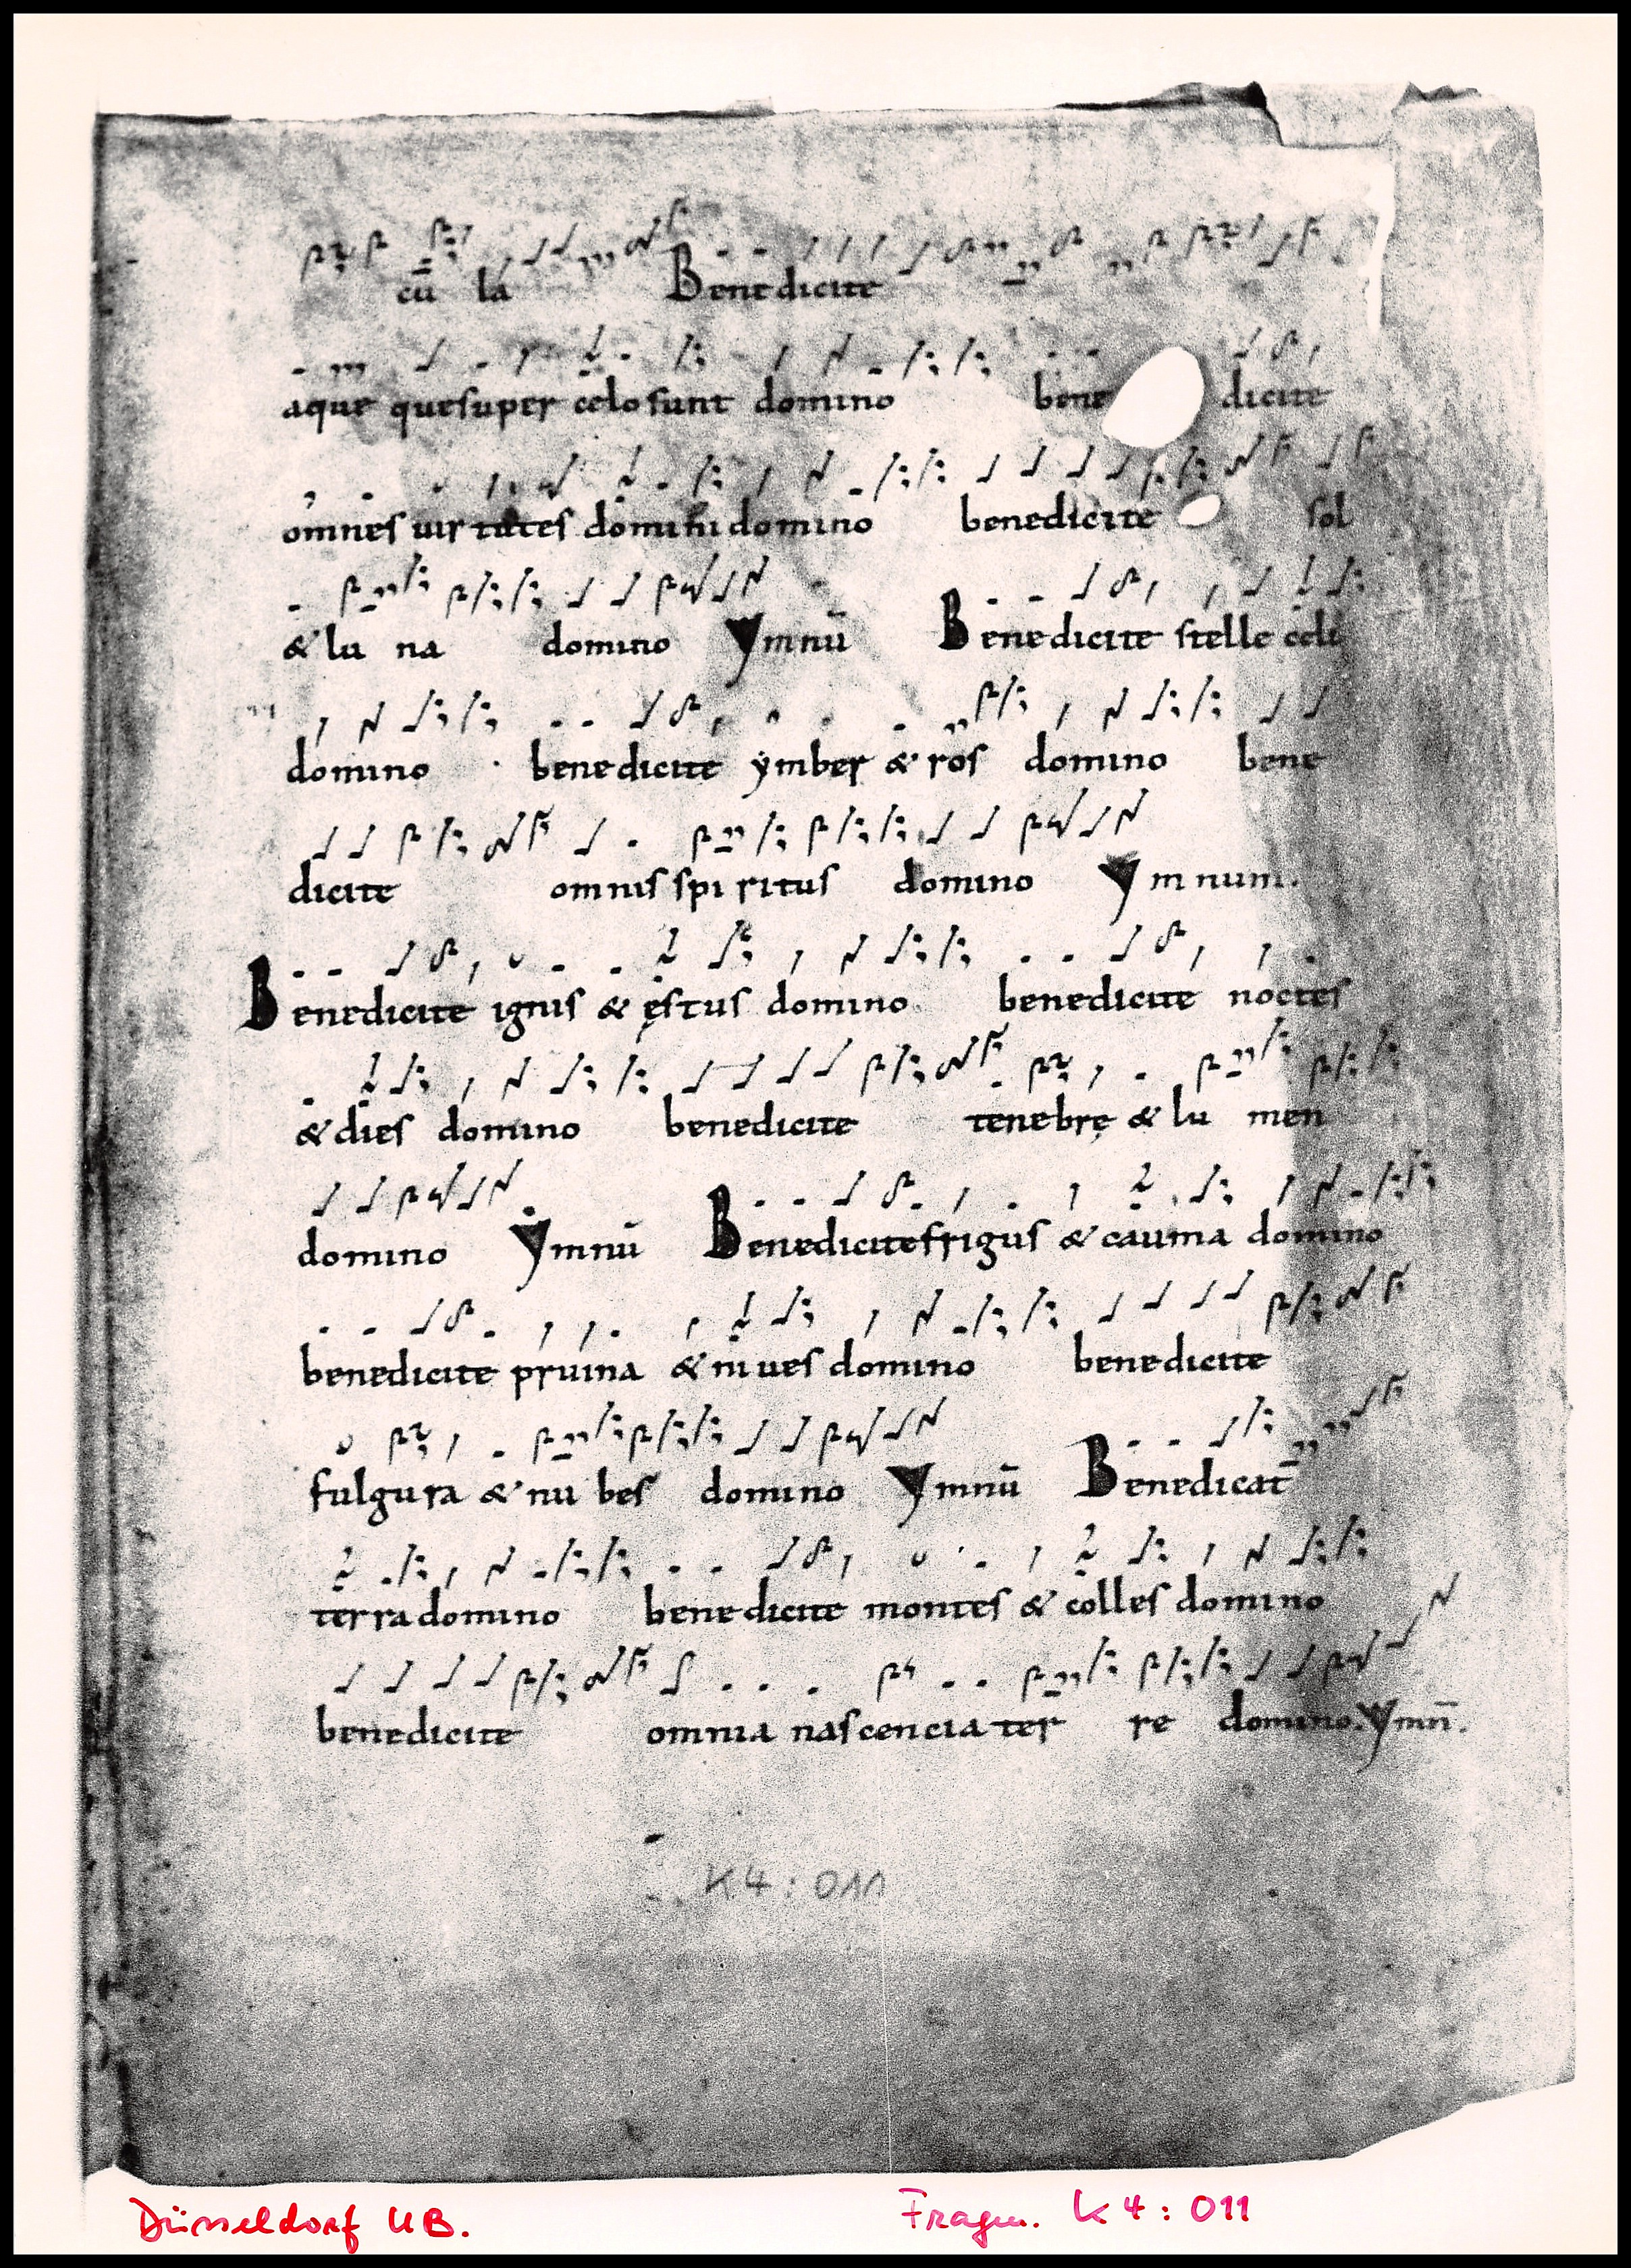 cū la Benedicite
aque que super celo sunt domino bene dicite
omnes uirtutes domini domino benedicite sol
& lu na domino Ymnū Benedicite stelle celi
domino · benedicite ymber & ros domino bene
dicite omnis spi ritus domino Ymnum.
Benedicite ignis & ęstus domino benedicite noctes
& dies domino benedicite tenebrę & lu men
domino Ymnū Benedicite frigus & cauma domino
benedicite pruina & niues domino benedicite
fulgura & nu bes domino Ymnū Benedicat̄
terra domino benedicite montes & colles domino
benedicite omnia nascencia ter re domino. Ymn̄.
K4:011
Düsseldorf UB. Fragm. K4:011